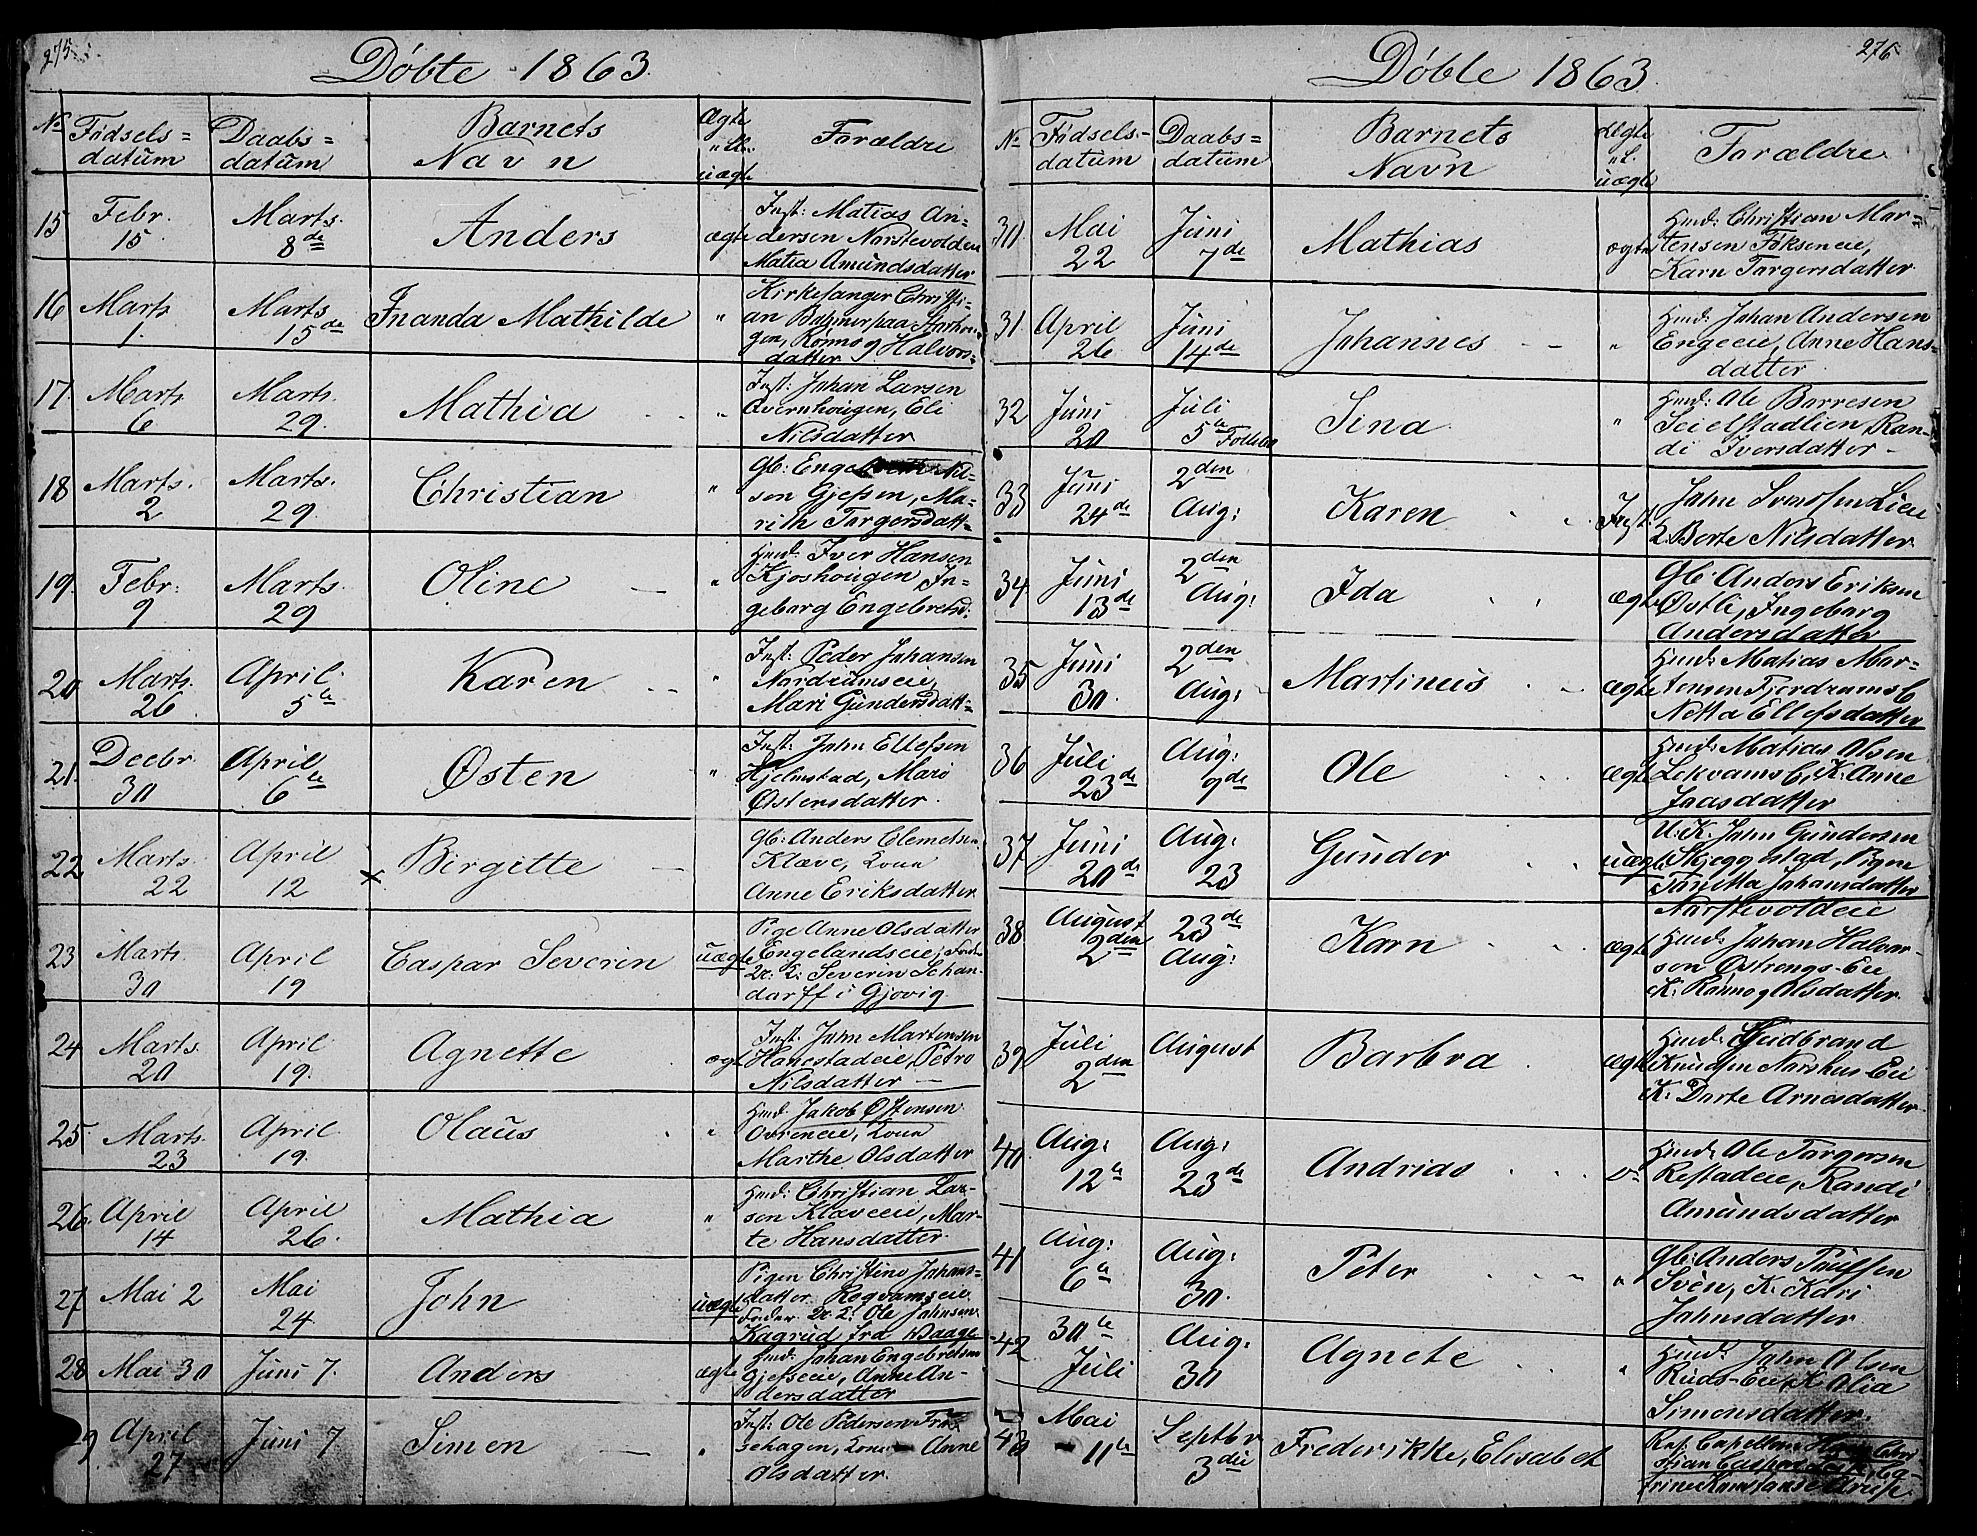 275
Döbte 1863.
No
Födsels=
datum
Daabs=
datum
Barnets
Navn
Ægte
uægte
Forældre
15
Febr.
15
Marts.
8de
Anders
ægte
Inst: Matias An=
dersen Norstevolden
Matea Amundsdatter
16
Marts
1.
Marts
15de
Inanda Mathilde
"
Kirkesanger Christi=
an
gen, Rönnog Halvors=
datter
17.
Marts
6
Marts.
29.
Mathia
"
Inst: Johan Larsen
Overnhougen, Eli
Nilsdatter
18
Marts.
2
Marts.
29.
Christian
"
Gb: Nil=
sen Gjefsen, Ma=
rith Torgersdatt=
19.
Febr.
9
Marts.
29
Oline
"
Huusd: Iver Hansen
Kjoshougen, In=
geborg Engebretsd.
20
Marts.
26
April.
5te
Karen
"
Inst: Peder Johansen
Nordrumseie,
Mari Gundersdatt=
21.
Decbr.
30
April
6te
Østen
"
Inst: John Ellefsen
Hjelmstad, Mari
Østensdatter.
22
Marts.
22
April
12
x Birgitte
Gb: Anders Clemetsen
Klæve, Kone
Anne Eriksdatter
23
Marts.
30
April
19
Caspar Severin
uægte
Pige Anne Olsdatter
Engelandseie,
Severin Schan=
dorff i Gjövig
24
Marts.
20
April.
19.
Agnette
ægte
Inst: John Martensen
Hanestadeie, Petro
Nilsdatter
25.
Marts.
23
April.
19.
Olaus
"
Huusd: Jakob Østensen
Ovreneie, Kone
Marthe Olsdatter
26.
April
14
April
26.
Mathia
"
Huusd: Christian Lar=
sen Klæveeie, Mar=
te Hansdatter.
27
Mai 2
Mai
24
John
uægte
Pigen Christine Johans=
datter Rogvamseie
Fader Ole Johnsen
Kagrud fra
28
Mai 30
Juni 7.
Anders
ægte
Huusd: Johan Engebretsen
Gjefseie, Anne An=
dersdatter
29
April
27
Juni 7
Simen
"
Inst: Ole Pedersen
sehagen, Kone Anne
Olsdatter
276
Döbte 1863.
No
Födsels=
datum
Daabs=
datum
Barnets
Navn
Ægte
uægte
Forældre.
30.
Mai
22
Juni
7de
Mathias
ægte
Huusd: Christian Mar=
tensen Fökseneie,
Karn Torgersdatter
31
April
26
Juni
14de
Johannes
"
Huusd: Johan Andersen
Engeeie, Anne Hans=
datter
32
Juni
20
Juli
5te
Sina
"
Huusd: Ole Borresen
Seielstadlien, Ran=
di Iversdatter
33
Juni
24de
2den
Aug:
Karen
Inst:
John Svendsen Lien
Borte Nilsdatter.
34
Juni
13de
2den
Aug:
Ida
ægte
Gb: Anders Eriksen
Østli, Ingeborg
Andersdatter
35
Juni
30.
2den
Aug:
Martinus
ægte
Huusd: Matias Mar=
tensen Fjerdrums E
Netta Ellefsdatter
36
Juli
23de
Aug:
9de
Ole
ægte
Huusd: Matias Olsen
Lekvams E, K: Anne
Joasdatter
37
Juni
20de
Aug:
23
Gunder
uægte
U. K. John Gundersen
Skjeggestad, Pigen
Johansdatter
Norstevoldeie
38
August
2den
23de
Aug:
Karn
ægte
Huusd: Johan Halvor=
sen Østrengs=Eie
K: Rönnog Olsdatter
39
Juli
2den
August
Barbra
ægte
Huusd: Gudbrand
Knudsen Narshus Eie
K: Dorte Arnesdatter
40
Aug:
12te
Aug:
23de
Andrias
do
Huusd: Ole Torgersen
Restadeie, Randi
Amundsdatter
41
Aug:
6te
Aug:
30.
Peter
"
Gb: Anders Poulsen
Svèn, K: Kari
Johnsdatter
42
30te
Juli
Aug:
30
Agnete
"
Huusd: John Olsen
Ruds=Eie, K Olia
Simonsdatter.
43
Mai
11te
Septbr
3die
Frederikke, Elisabet
Res: Capellan Hans Chri
stian
trine Konstanse